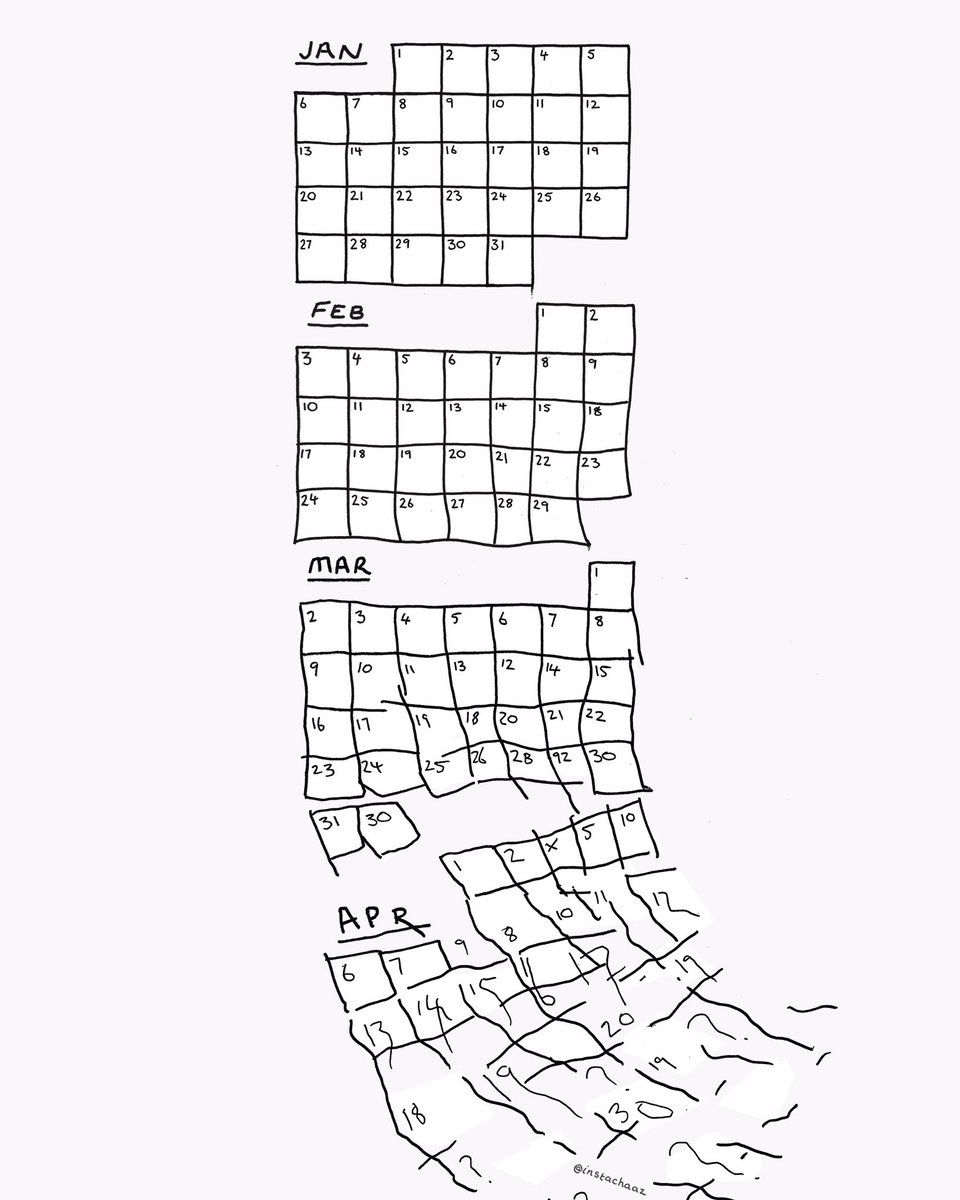 JAN 1 2 3 4 5
6 7 8 9 10 11 12
13 14 15 16 17 18 19
20 21 22 23 24 25 26
27 28 29 30 31
FEB 1 2
3 4 5 6 7 8 9
10 11 12 13 14 15 18
17 18 19 20 21 22 23
24 25 26 27 28 29
MAR 1
2 3 4 5 6 7 8
9 10 11 13 12 14 15
16 17 19 18 20 21 22
23 24 25 26 28 92 30
31 30
1 2 X 5 10
APR 8 10 11 12
6 7 9 11 ? 19
13 14 15 6 20 ?
18 9 ? 19
? 30
?
@instachaaz